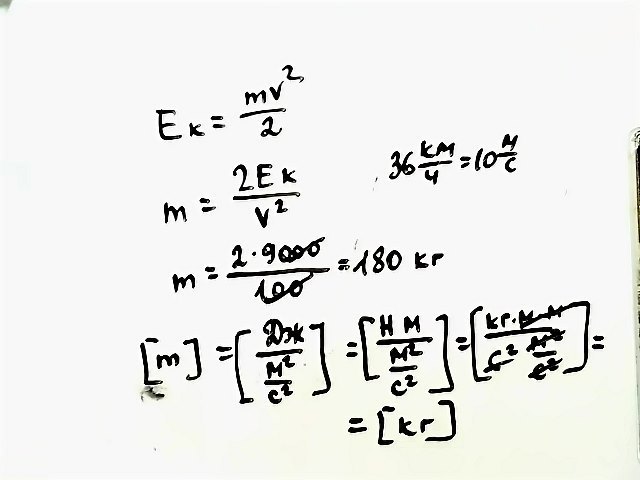 Eк = mv²/2
36 км/ч = 10 м/с
m = 2Eк/v²
m = 2·9000/100 = 180 кг
[m] = [Дж/(м²/с²)] = [Н м/(м²/с²)] = [кг·м·м/(с² м²/с²)] =
= [кг]